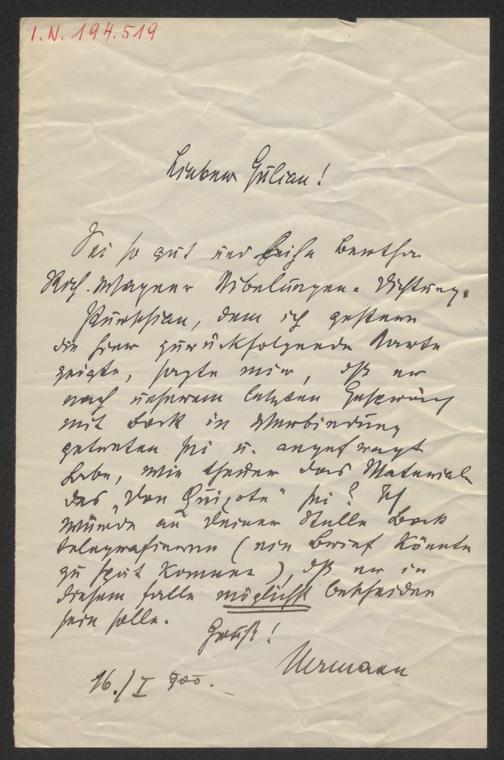 I.N. 194.519
Lieber Gülian!
Sei so gut und leihe Bertha
Rich. Wagner Nibelungen-Dichtung.
, dem ich gestern
die hier zurückfolgende Karte
zeigte, sagte mir, dß er
nach unserem letzten Gespräch
mit Bock in Verbindung
getreten sei u. angefragt
habe, wie theuer das Material
des „Don Quixote" sei? Ich
würde an Deiner Stelle Bock
telegrafieren (ein Brief könnte
zu spät kommen), dß er in
diesem Falle möglichst bescheiden
sein solle.
Gruß!
Hermann
16./I 900.